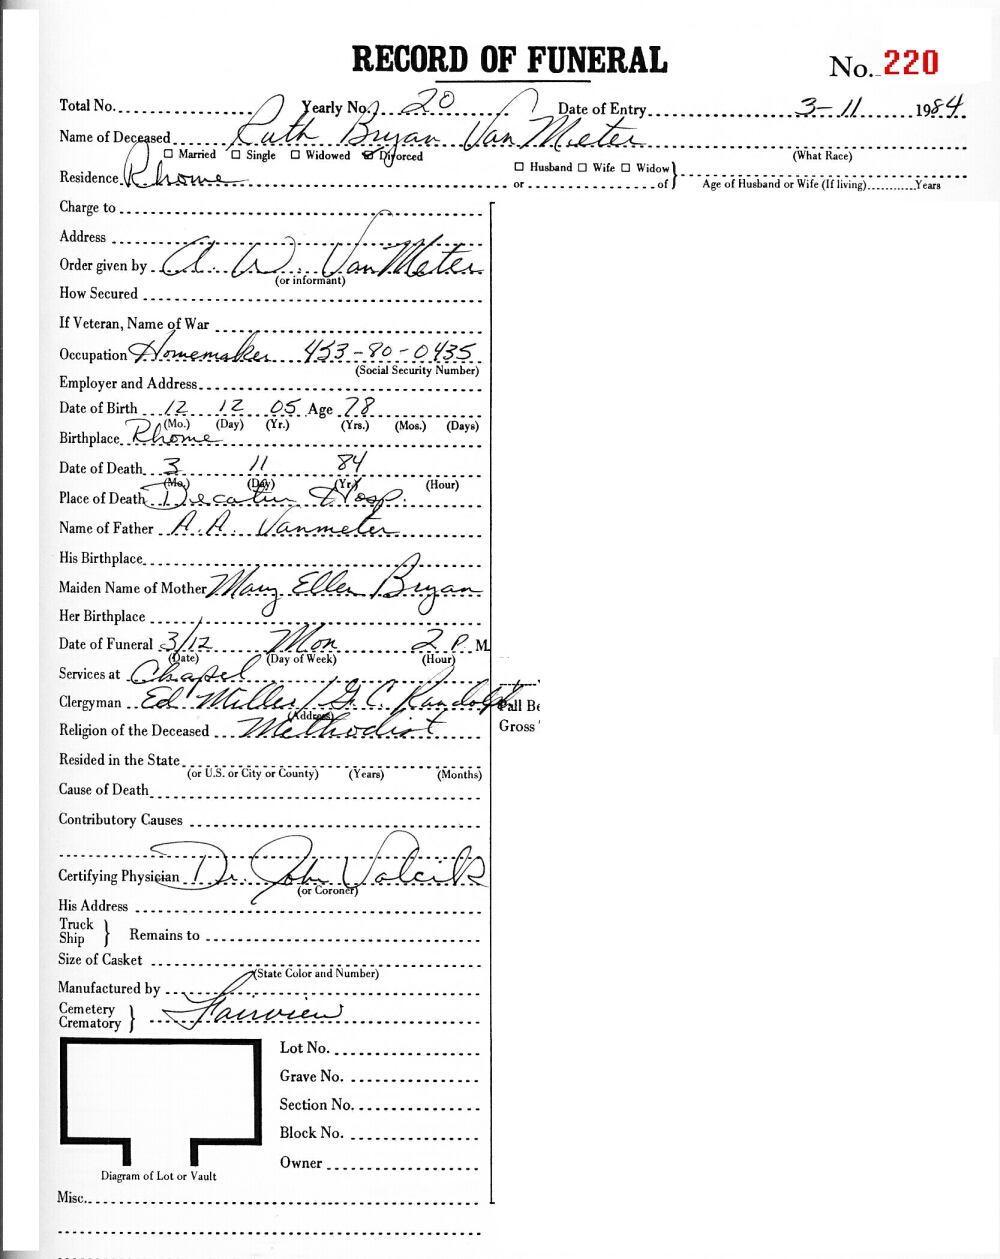 RECORD OF FUNERAL
No. 220
Total No. Yearly No. 20 Date of Entry 3-11 1984
Name of Deceased Ruth Bryan Van Meter
☐ Married ☐ Single ☐ Widowed ☑ Divorced (What Race)
Residence Rhome ☐ Husband ☐ Wife ☐ Widow
or of Age of Husband or Wife (If living) Years
Charge to
Address
Order given by A. W. Van Meter
(or informant)
How Secured
If Veteran, Name of War
Occupation Homemaker 453-80-0435
(Social Security Number)
Employer and Address
Date of Birth 12 12 05 Age 78
(Mo.) (Day) (Yr.) (Yrs.) (Mos.) (Days)
Birthplace Rhome
Date of Death 3 11 84
(Mo.) (Day) (Yr.) (Hour)
Place of Death Decatur Hosp.
Name of Father A.A. Vanmeter
His Birthplace
Maiden Name of Mother Mary Ellen Bryan
Her Birthplace
Date of Funeral 3/12 Mon 2 P. M.
(Date) (Day of Week) (Hour)
Services at Chapel
Clergyman Ed Miller / G. C. Randolph
(Address)
Pall Be
Religion of the Deceased Methodist
Gross
Resided in the State
(or U.S. or City or County) (Years) (Months)
Cause of Death
Contributory Causes
Certifying Physician Dr. John Valcik
(or Coroner)
His Address
Truck
Ship } Remains to
Size of Casket
(State Color and Number)
Manufactured by
Cemetery
Crematory } Fairview
Lot No.
Grave No.
Section No.
Block No.
Owner
Diagram of Lot or Vault
Misc.